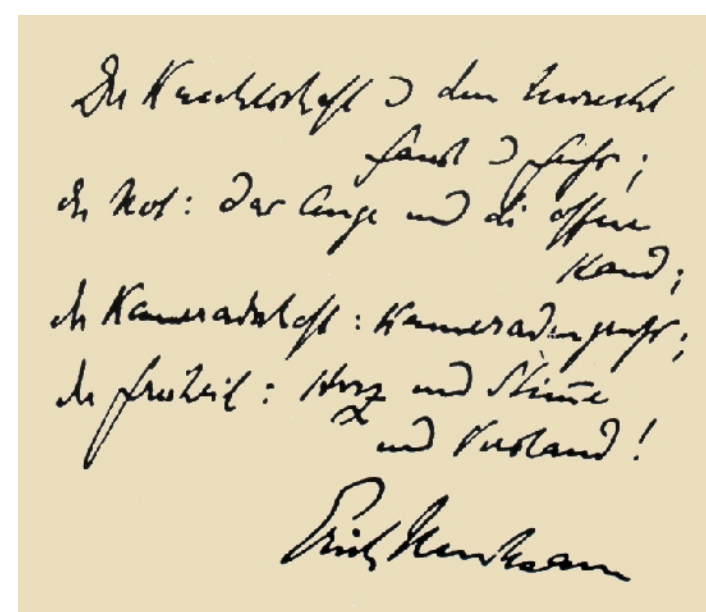 Der Knechtschaft u dem Unrecht
Faust u Geist;
der Not: das Auge und die offene
Hand;
der Kameradschaft: Kameradengruß;
der Freiheit: Herz und Stimme
und Verstand!
Erich